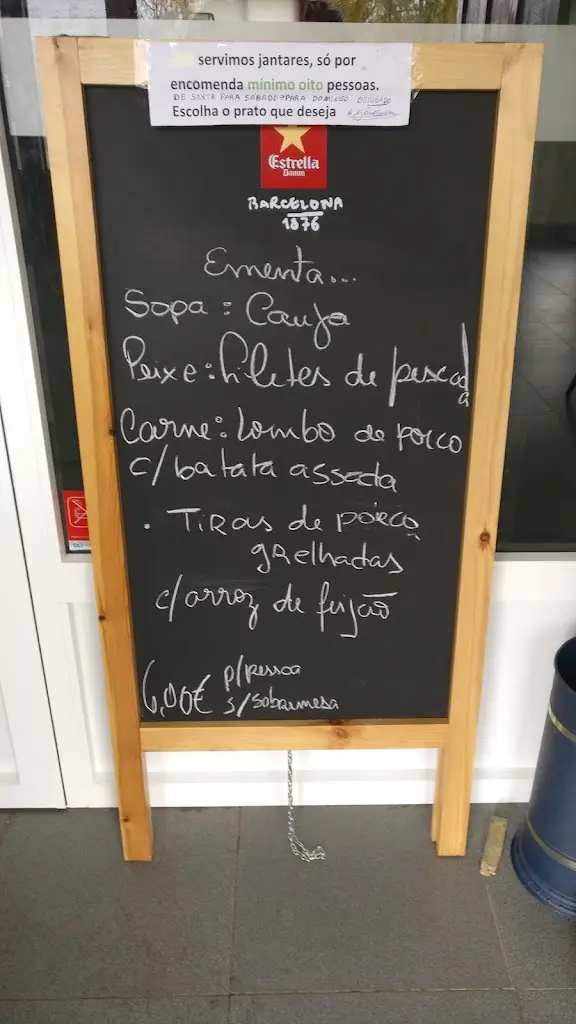 servimos jantares, só por
encomenda mínimo oito pessoas.
DE SEXTA PARA SABADO PARA DOMINGO OBRIGADO
Escolha o prato que deseja
Estrella
Damm
BARCELONA
1876
Ementa...
Sopa: Canja
Peixe: filetes de pescada
Carne: Lombo de porco
c/batata assada
. TIRAS de porco
grelhadas
c/arroz de feijão
6,00€ p/pessoa
s/sobremesa